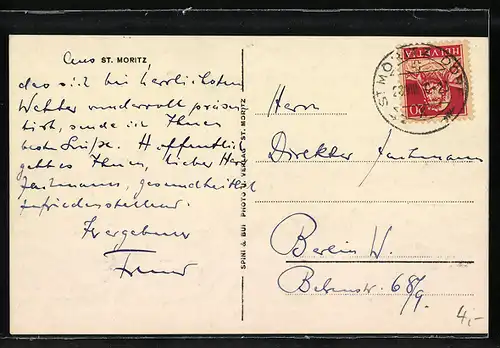 Aus ST. MORITZ
das sich bei herrlichstem
Wetter wundervoll präsen-
tirt, sende ich Ihnen
beste Grüße. Hoffentlich
geht es Ihnen, lieber Herr
gesundheitlich
zufriedenstellend.
Ihr ergebener
SPINI & BUI PHOTO VERLAG ST. MORITZ
HELVETIA
20
ST. MORITZ DORF
Herrn
Direktor
Berlin W.
68/9.
4,-